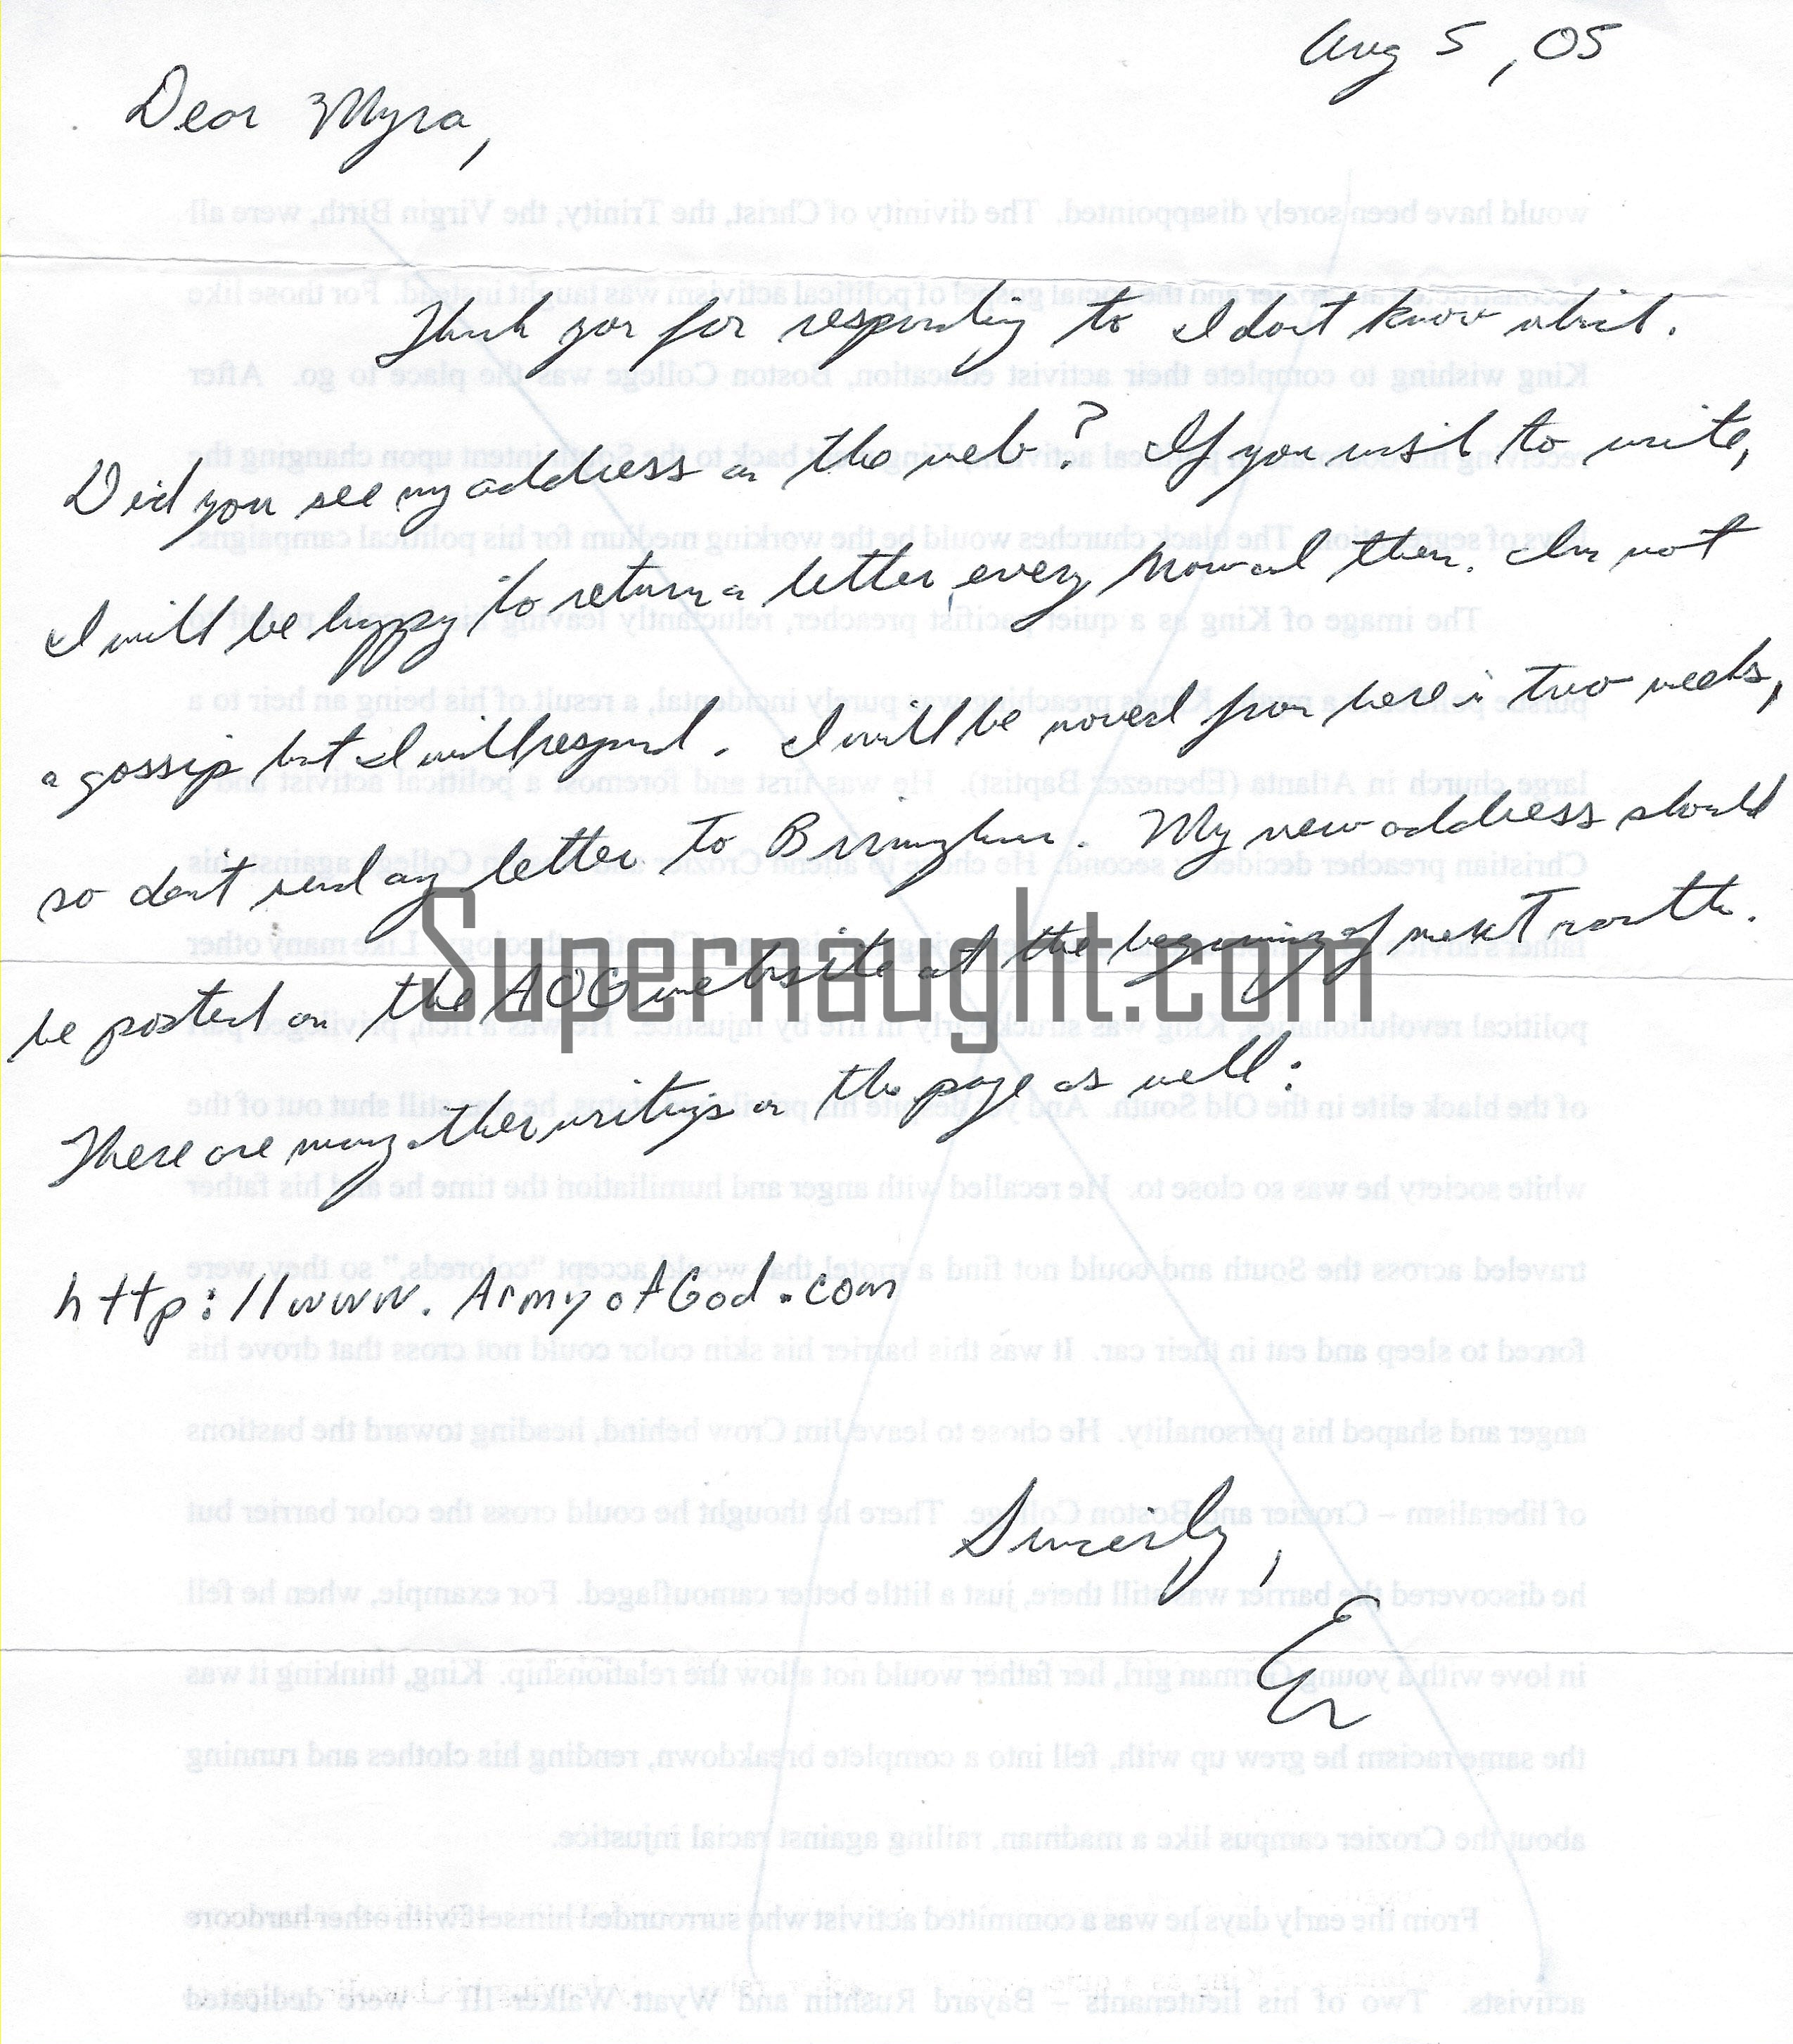 Aug 5, 05
Dear Myra,
Thank you for responding to I dont know which.
Did you see my address on the web? If you wish to write,
I will be happy to return a letter every now and then. Im not
a gossip but I will respond. I will be moved from here in two weeks,
so don't send any letter to Birmingham. My new address should
be posted on the AOG website at the begining of next month.
Supernaught.com
There are many other writings on the page as well:
http://www.ArmyofGod.com
Sincerly,
E
would have been sorely disappointed. The divinity of Christ, the Trinity, the Virgin Birth, were all
and the social gospel of political activism was taught instead. For those like
King wishing to complete their activist education, Boston College was the place to go. After
back to the South intent upon changing the
laws of segregation. The black churches would be the working medium for his political campaigns.
The image of King as a quiet pacifist preacher, reluctantly leaving
preaching was purely incidental, a result of his being an heir to a
large church in Atlanta (Ebenezer Baptist). He was first and foremost a political activist and
Christian preacher decidedly second. He chose to attend Crozier College against his
father's Like many other
political revolutionaries, King was struck early in life by injustice. He was a rich, privileged
of the black elite in the Old South. And yet despite his privileged status, he was still shut out of the
white society he was so close to. He recalled with anger and humiliation the time he and his father
traveled across the South and could not find a motel that would accept "coloreds," so they were
forced to sleep and eat in their car. It was this barrier his skin color could not cross that drove his
anger and shaped his personality. He chose to leave Jim Crow behind, heading toward the bastions
of liberalism – Crozier and Boston College. There he thought he could cross the color barrier but
he discovered the barrier was still there, just a little better camouflaged. For example, when he fell
in love with a young German girl, her father would not allow the relationship. King, thinking it was
the same racism he grew up with, fell into a complete breakdown, rending his clothes and running
about the Crozier campus like a madman, railing against racial injustice.
From the early days he was a committed activist who surrounded himself with other hardcore
activists. Two of his lieutenants – Bayard Rushtin and Wyatt Walker III – were dedicated